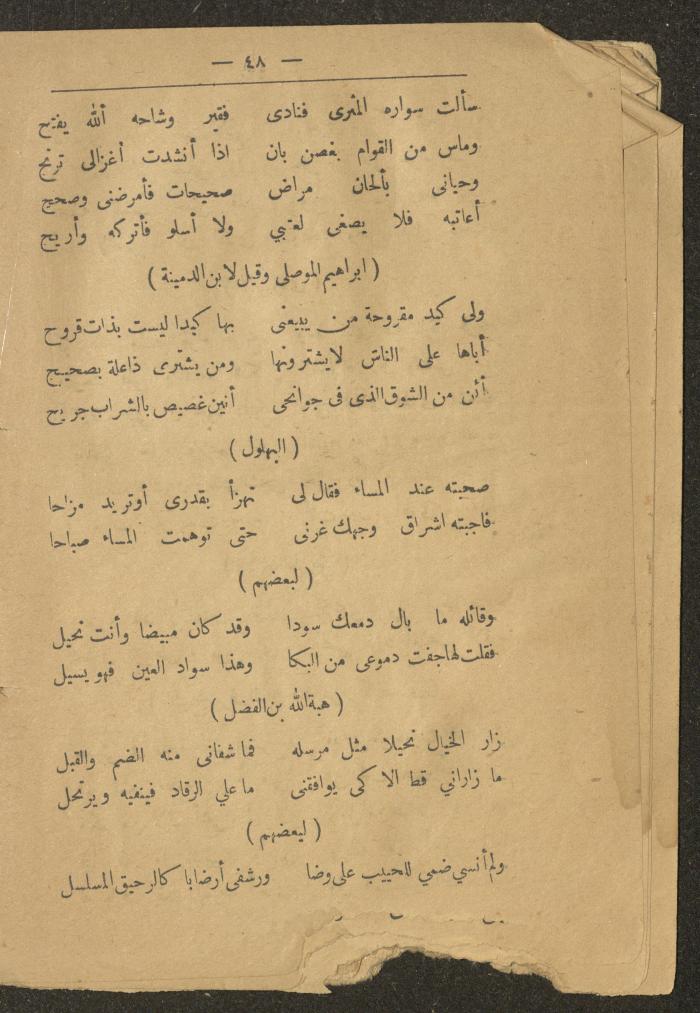 — ٤٨ —
سألت سواره المثرى فنادى فقير وشاحه ألله يفتح
وماس من القوام بغصن بان اذا أنشدت أغزالى ترنح
وحيانى بألحان مراض صحيحات فأمرضنى وصحح
أعاتبه فلا يصغى لعتبي ولا أسلو فأتركه وأريح
( ابراهيم الموصلى وقيل لابن الدمينة )
ولى كيد مقروحة من يبيعنى بها كبدا ليست بذات قروح
أباها على الناس لايشترونها ومن يشترى ذاعلة بصحيح
أئن من الشوق الذى فى جوانحى أنين غصيص بالشراب جريح
( البهلول )
صحبته عند المساء فقال لى تهزأ بقدرى أوتريد مزاحا
فاجبته اشراق وجهك غرنى حتى توهمت المساء صباحا
( لبعضهم )
وقائله ما بال دمعك سودا وقد كان مبيضا وأنت نحيل
فقلت لها جفت دموعى من البكا وهذا سواد العين فهو يسيل
( هبة الله بن الفضل )
زار الخيال نحيلا مثل مرسله فما شفانى منه الضم والقبل
ما زارانى قط الا كى يوافقنى ما علي الرقاد فينفيه ويرتحل
( لبعضهم )
ولم أنسي ضمي للحبيب على وضا ورشفى أرضابا كالرحيق المسلسل